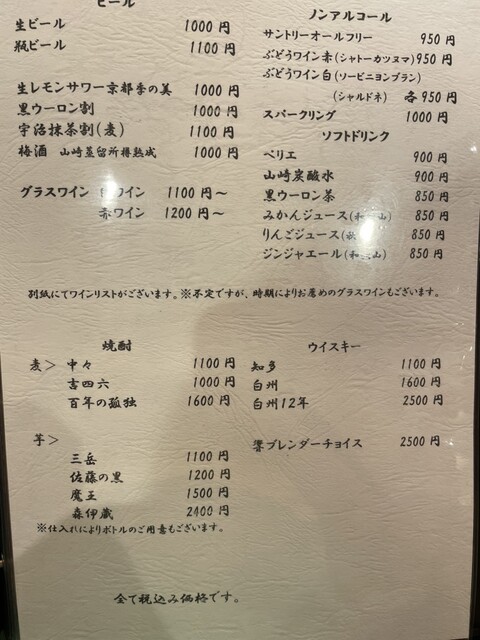 ビール
生ビール 1000円
瓶ビール 1100円
生レモンサワー京都季の美 1000円
黒ウーロン割 1000円
宇治抹茶割(麦) 1100円
梅酒 山崎蒸留所樽熟成 1000円
グラスワイン 白ワイン 1100円～
赤ワイン 1200円～
ノンアルコール
サントリーオールフリー 950円
ぶどうワイン赤(シャトーカツヌマ)950円
ぶどうワイン白(ソービニヨンブラン)
(シャルドネ) 各950円
スパークリング 1000円
ソフトドリンク
ペリエ 900円
山崎炭酸水 900円
黒ウーロン茶 850円
みかんジュース(和歌山) 850円
りんごジュース( 850円
ジンジャエール(和歌山) 850円
別紙にてワインリストがございます。※不定ですが、時期によりお薦めのグラスワインもございます。
焼酎
麦＞ 中々 1100円
吉四六 1000円
百年の孤独 1600円
芋＞
三岳 1100円
佐藤の黒 1200円
魔王 1500円
森伊蔵 2400円
※仕入れによりボトルのご用意もございます。
ウイスキー
知多 1100円
白州 1600円
白州12年 2500円
響ブレンダーチョイス 2500円
全て税込み価格です。